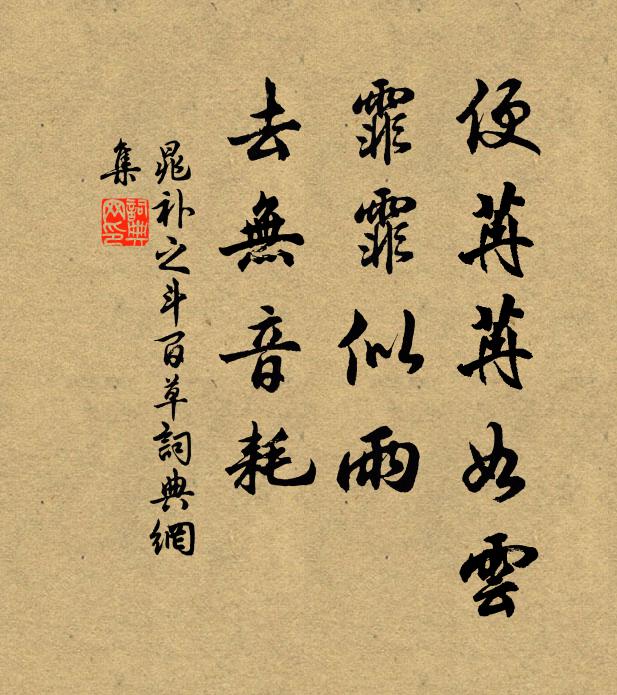 便苒苒如雲
霏霏似雨
去無音耗
晁補之斗百草詞典網
集
詞典
网印